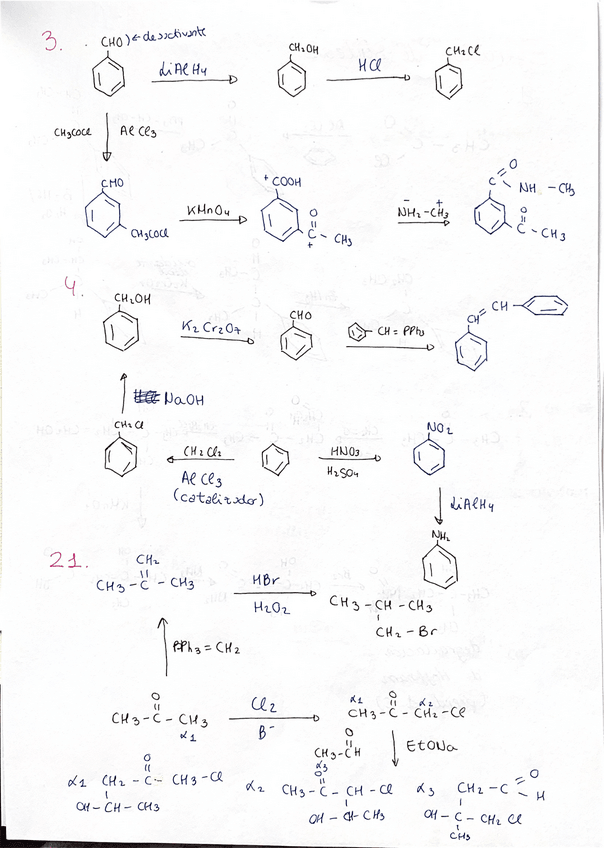 3. CHO ) ← desactivante
CH2OH
CH2Cl
LiAlH4
HCl
CH3COCl AlCl3
CHO
CH3COCl
KMnO4
+
COOH
O
C - CH3
+
- +
NH2 - CH3
O
C - NH - CH3
O
C - CH3
4.
CH2OH
K2Cr2O7
CHO
CH = PPh3
CH = CH
NaOH
CH2Cl
CH2Cl2
AlCl3
(catalizador)
HNO3
H2SO4
NO2
LiAlH4
NH2
21.
CH2
CH3 - C - CH3
HBr
H2O2
CH3 - CH - CH3
CH2 - Br
PPh3 = CH2
O
CH3 - C - CH3
α1
Cl2
B-
α1 O α2
CH3 - C - CH2 - Cl
O
CH3 - C H
α3
EtONa
α1 CH2 - C - CH3 - Cl
O
OH - CH - CH3
α2 CH3 - C - CH - Cl
O
OH - CH - CH3
α3 CH2 - C
O
H
OH - C - CH2 Cl
CH3